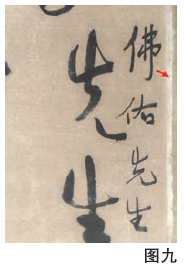 佛佑先生
先生
图九